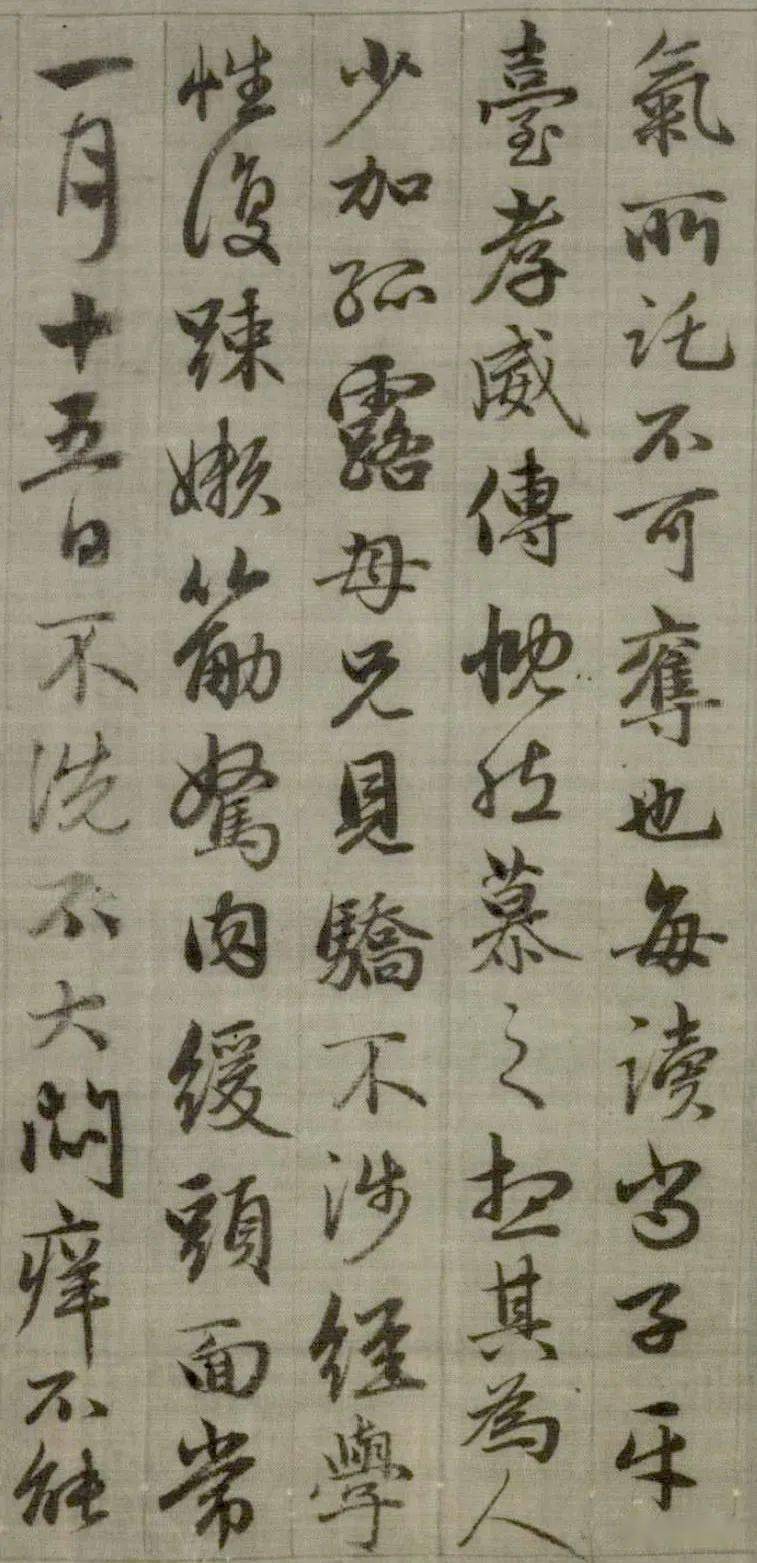 氣所託不可奪也每讀尚子平
臺孝威傳慨然慕之想其為人
少加孤露母兄見驕不涉經學
性復踈嬾筋駑肉緩頭面常
一月十五日不洗不大悶癢不能